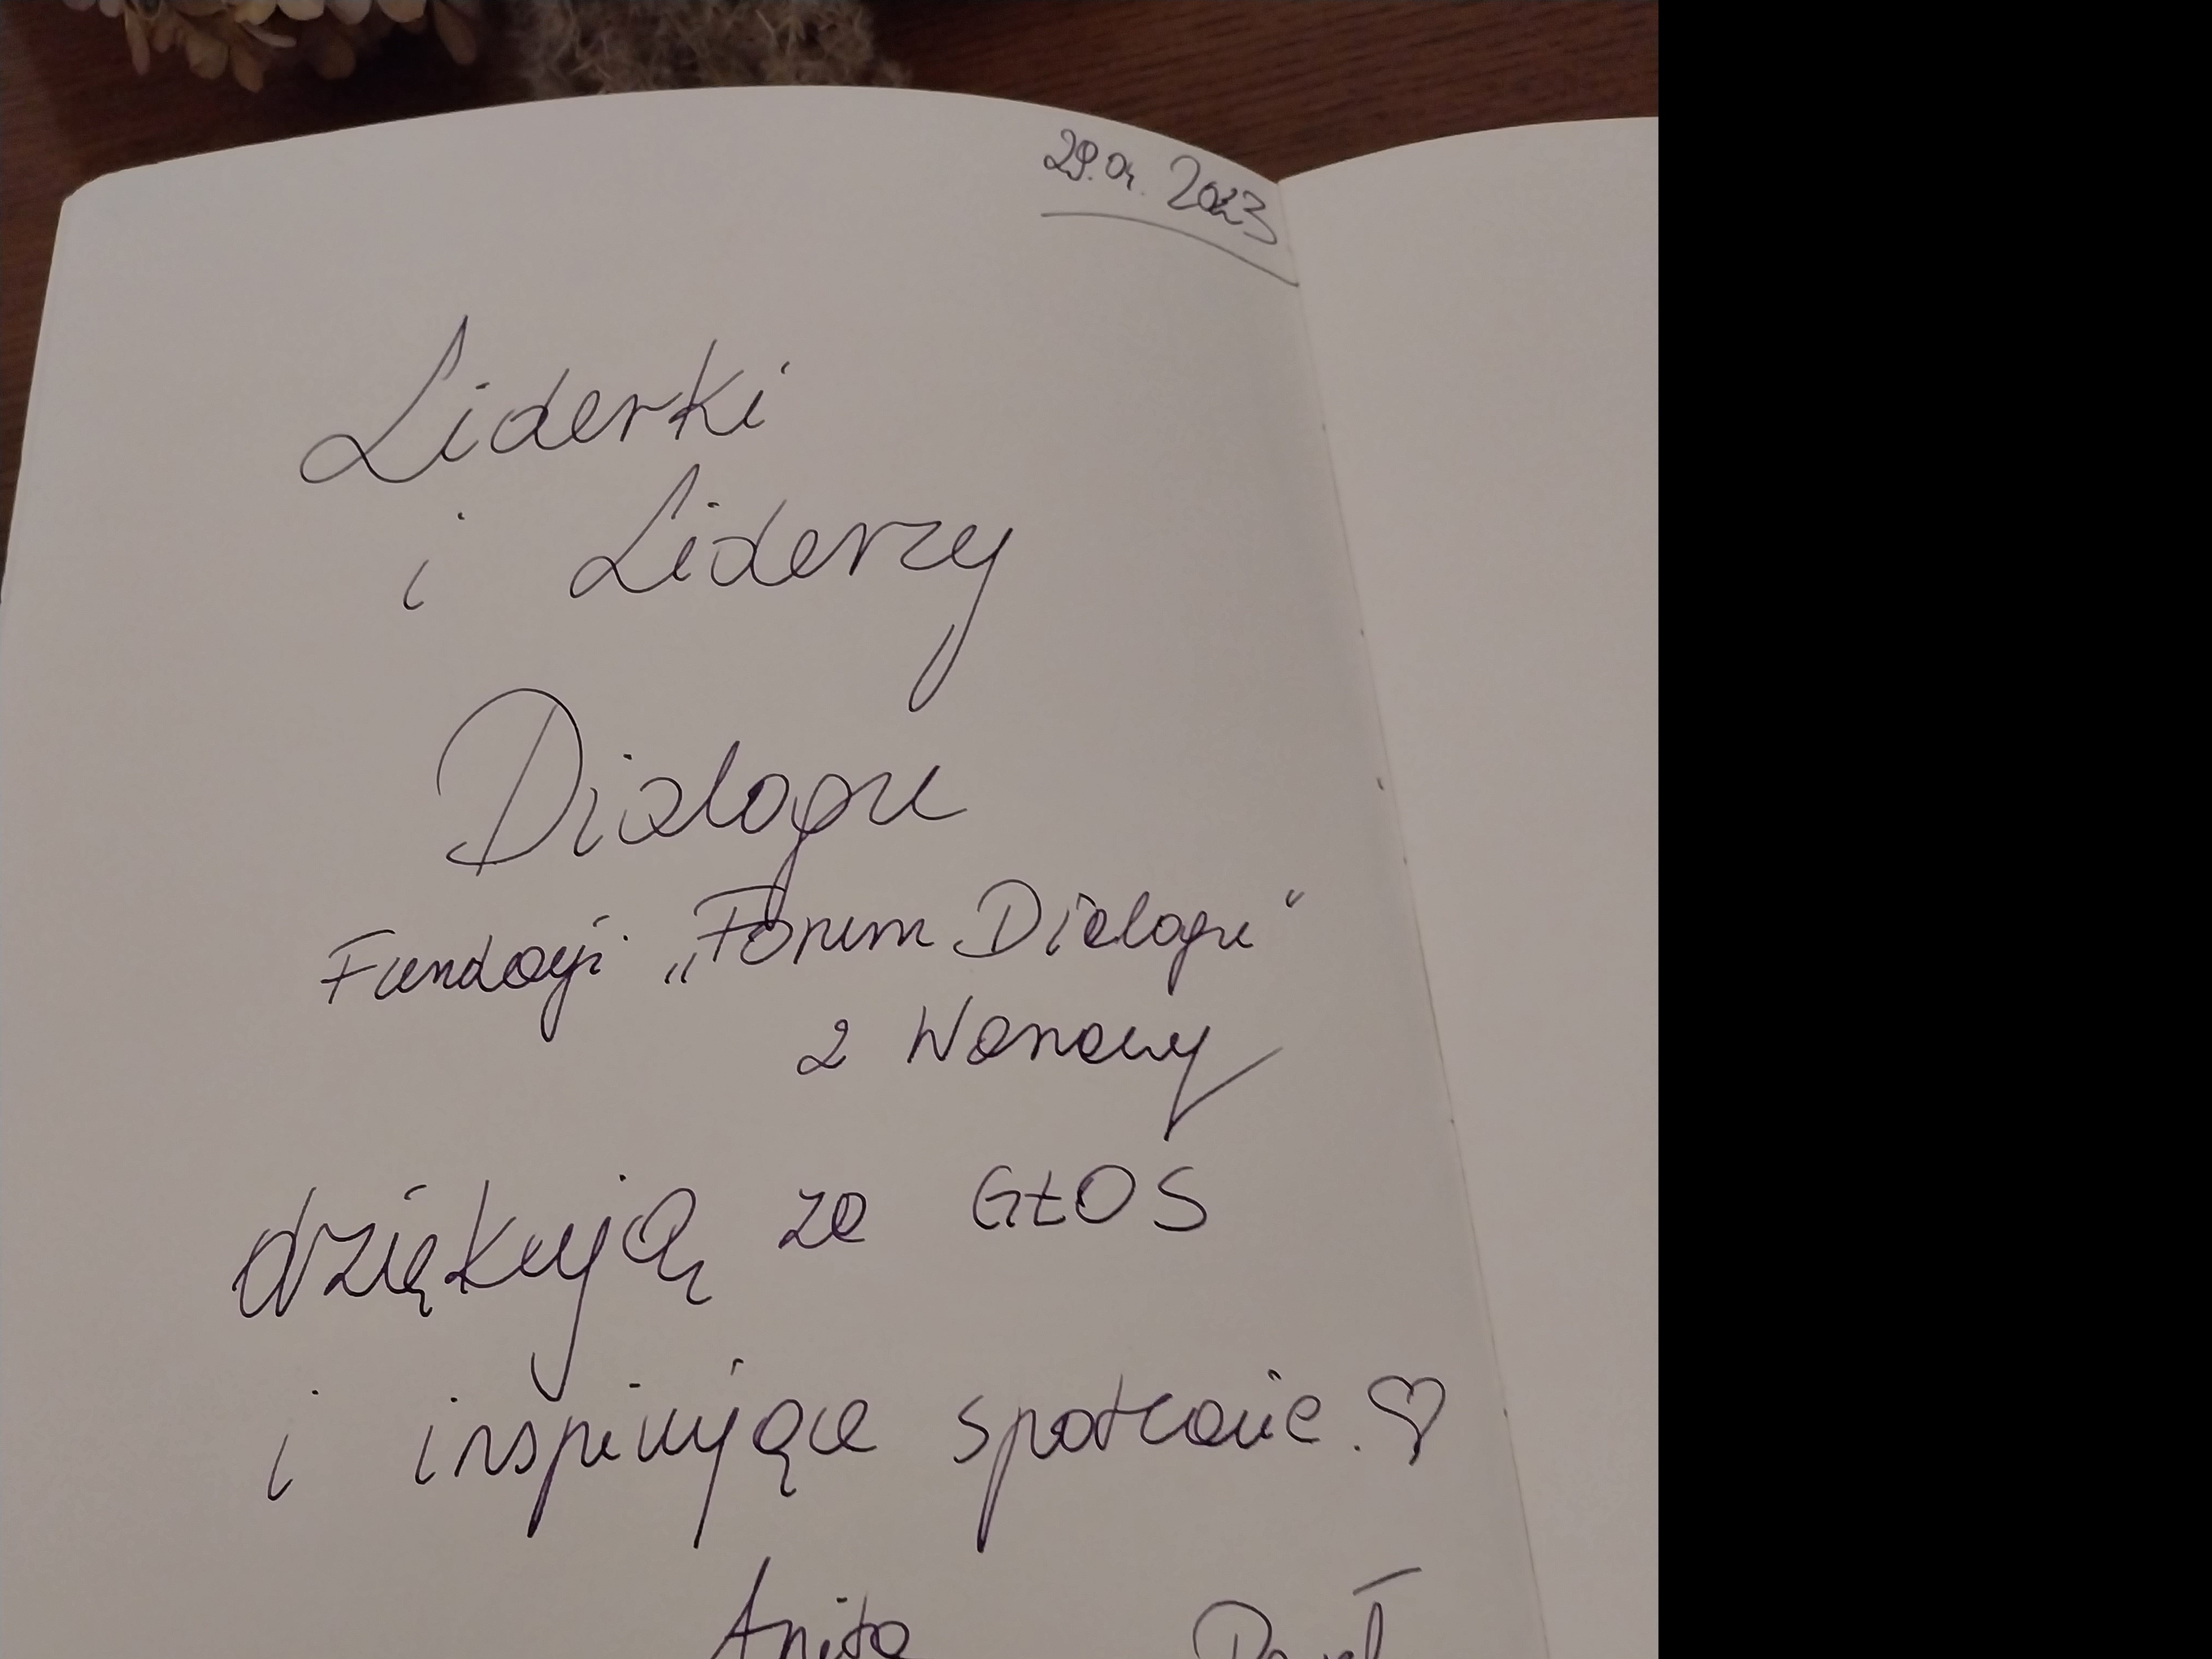 29.01. 2023
Liderki
i Liderzy
Dialogu
Fundacji „Forum Dialogu"
z Warszawy
dziękują za GŁOS
i inspirujące spotkanie. ♡
Anita Paweł